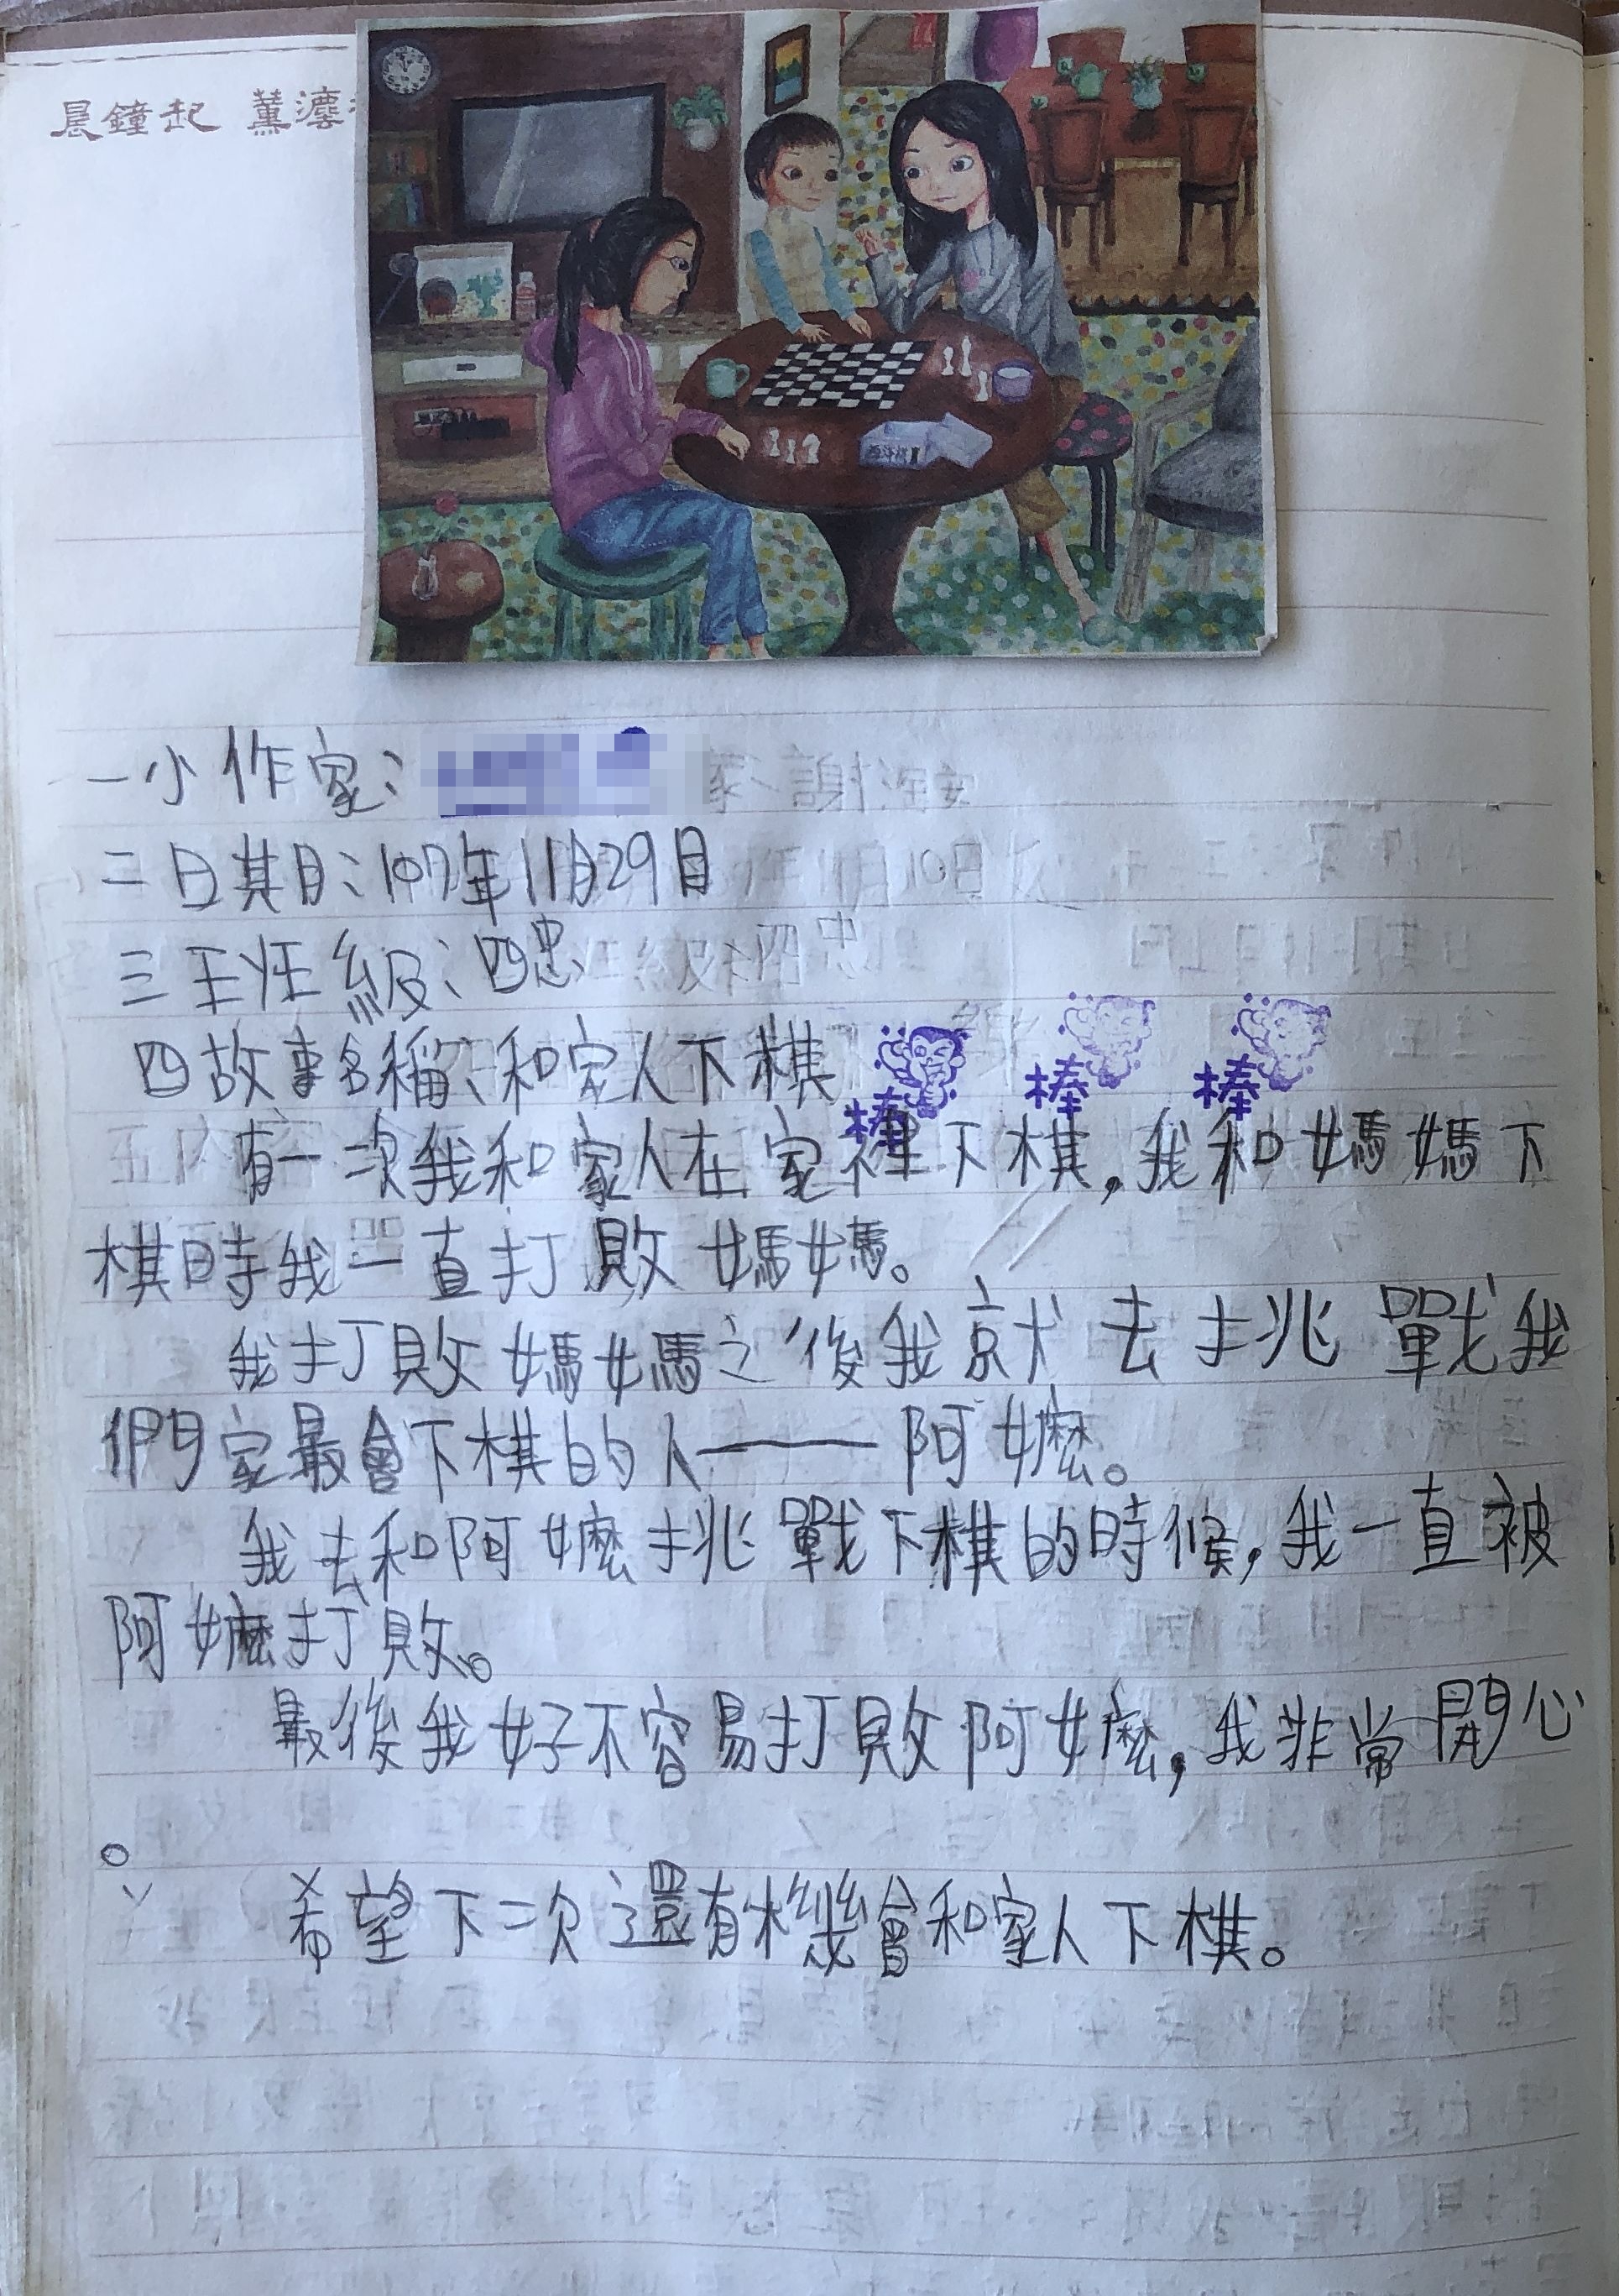 晨鐘起 薰
西洋棋
一小作家:
二日期:107年11月29日
三班級:四忠
四故事名稱:和家人下棋
棒 棒 棒
有一次我和家人在家裡下棋,我和媽媽下
棋時我一直打敗媽媽。
我打敗媽媽之後我就去挑戰我
們家最會下棋的人——阿嬤。
我去和阿嬤挑戰下棋的時候,我一直被
阿嬤打敗。
最後我好不容易打敗阿嬤,我非常開心
。
希望下次還有機會和家人下棋。